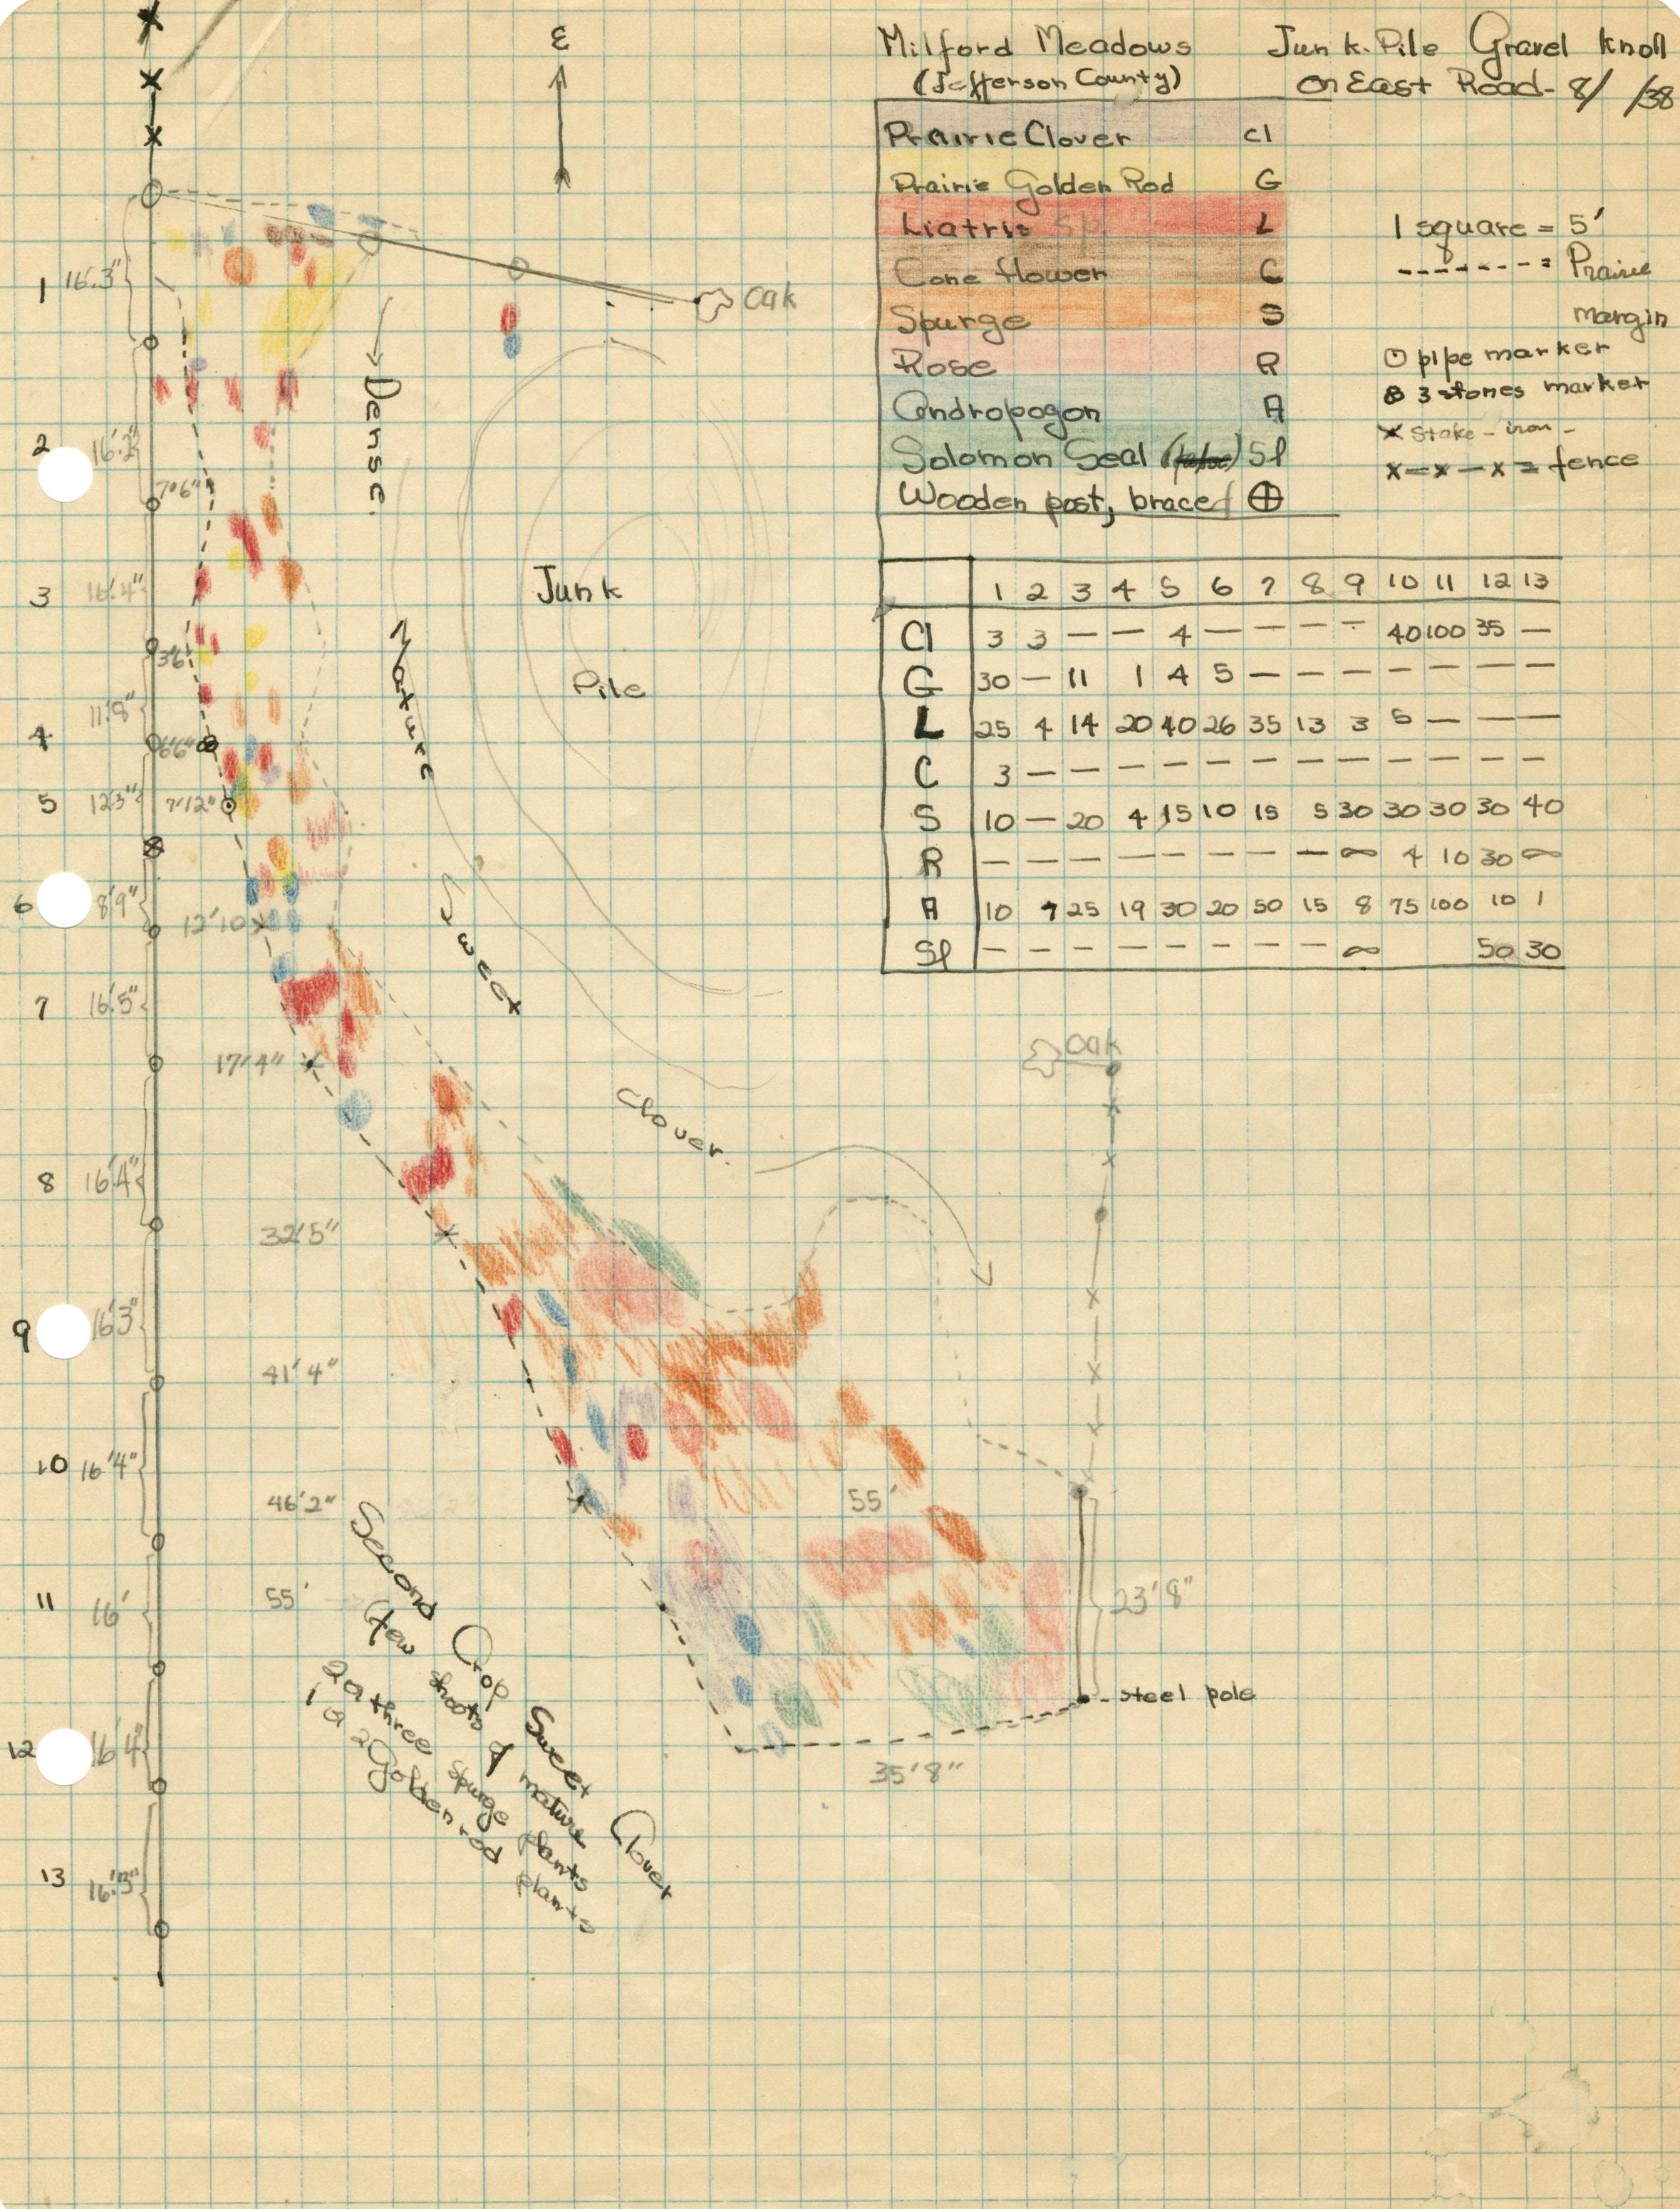 ε
Milford Meadows
(Jefferson County)
Junk Pile Gravel Knoll
On East Road - 8/ /38
Prairie Clover Cl
Prairie Golden Rod G
Liatris sp. L
Cone flower C
Spurge S
Rose R
Andropogon A
Solomon Seal Sl
Wooden post, braced ⊕
1 square = 5'
------- = Prairie
margin
⊙ pipe marker
3 stones marker
x Stake - iron -
x—x—x = fence
1 2 3 4 5 6 7 8 9 10 11 12 13
Cl 3 3 — — 4 — — — — 40 100 35 —
G 30 — 11 1 4 5 — — — — — — —
L 25 4 14 20 40 26 35 13 3 5 — — —
C 3 — — — — — — — — — — — —
S 10 — 20 4 15 10 15 5 30 30 30 30 40
R — — — — — — — — ∞ 4 10 30 ∞
A 10 7 25 19 30 20 50 15 8 75 100 10 1
Sl — — — — — — — — ∞ 50 30
Oak
1 16'.3"
2 16'.2"
7'6"
3 16'.4"
3'6"
4 11'.8"
6'6"
5 12'3"
7'12"
6 8'9"
12'10
7 16'.5"
17'4"
8 16'4"
32'5"
9 16'3"
41'4"
10 16'4"
46'2"
11 16'
55'
12 16'4"
13 16'.3"
Dense
Mature
Sweet
Clover.
Junk
Pile
Oak
55'
23'8"
- steel pole
35'8"
Second Crop Sweet Clover
(few shoots of mature
2 or three spurge plants
1 or 2 Golden rod plants